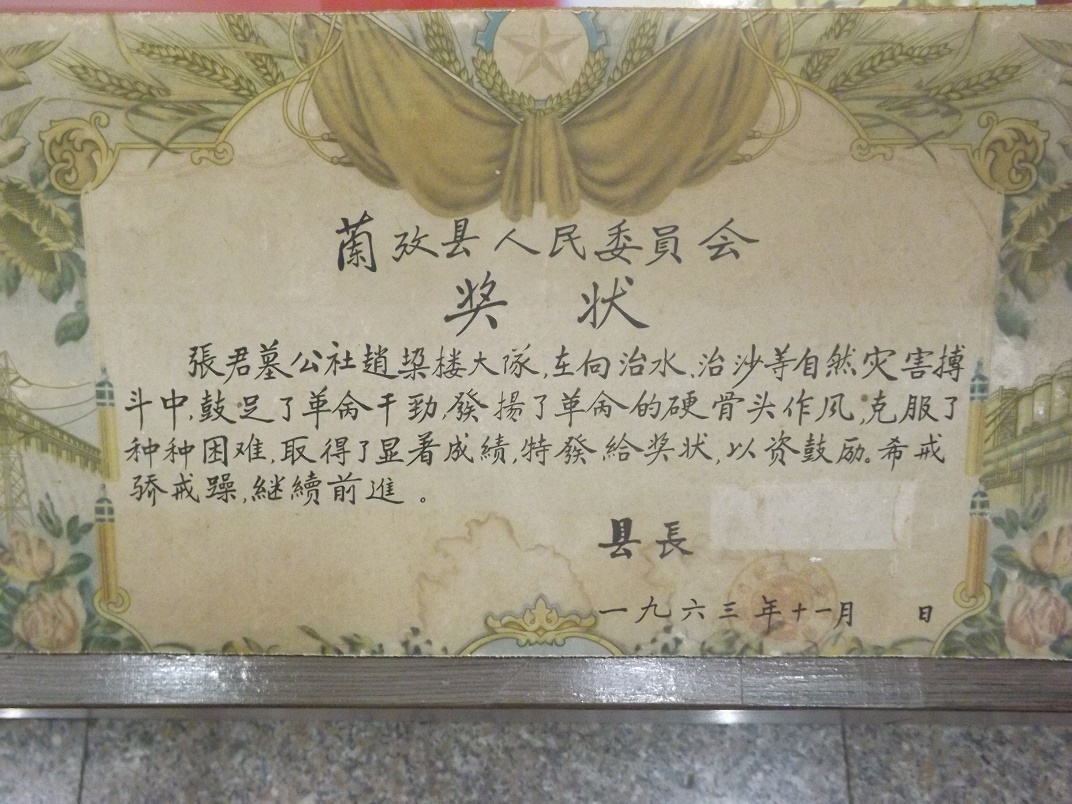 蘭攷县人民委員会
奖 状
張君墓公社趙梁楼大隊,在向治水、治沙等自然灾害搏
斗中,鼓足了革命干勁,發揚了革命的硬骨头作风,克服了
种种困难,取得了显著成績,特發給奖状,以资鼓励。希戒
骄戒躁,継續前進。
县長
一九六三年十一月 日